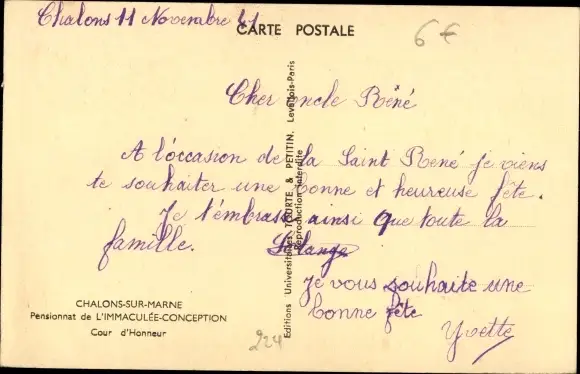 Chalons 11 Novembre 41
CARTE POSTALE
6 €
Cher oncle René
A l'occasion de la Saint René je viens
te souhaiter une bonne et heureuse fête.
Je t'embrasse ainsi que toute la
famille. Solange
Je vous souhaite une
bonne fête
Yvette
CHALONS-SUR-MARNE
Pensionnat de L'IMMACULÉE-CONCEPTION
Cour d'Honneur
224
Editions Universitaires TOURTE & PETITIN. Levallois-Paris
Reproduction Interdite